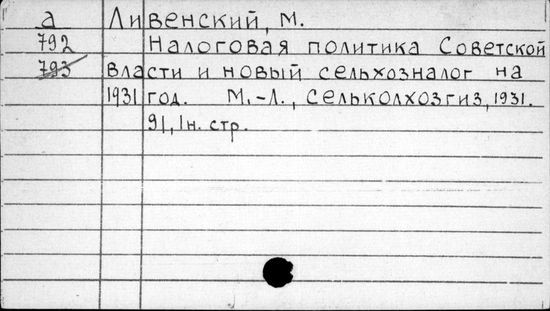 а Ливенский, М.
792 Налоговая политика Советской
793 власти и новый сельхозналог на
1931 год. М.-Л., Сельколхозгиз, 1931.
91, 1н. стр.